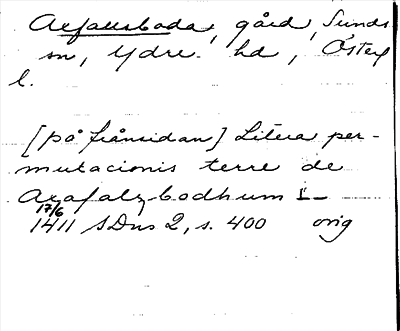 Axfallsboda, gård, Sunds
sn, Ydre hd, Österg
l.
[på frånsidan] Litera per-
mutacionis terre de
Axafalzbodhum
17/6
1411 SDns 2, s. 400 orig